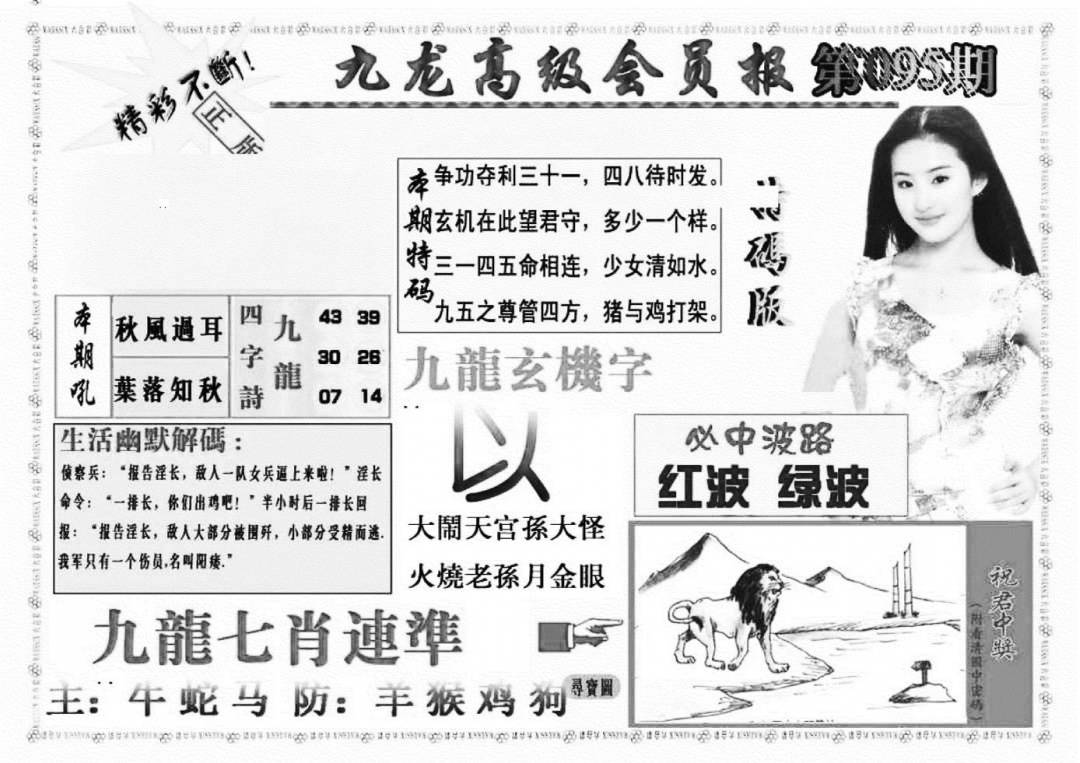 精彩不斷！
正版
九龙高级会员报
第095期
本期特码
争功夺利三十一，四八待时发。
玄机在此望君守，多少一个样。
三一四五命相连，少女清如水。
九五之尊管四方，猪与鸡打架。
特碼版
本期吼
秋風過耳
葉落知秋
四字詩
九龍
43 39
30 26
07 14
九龍玄機字
以
大鬧天宫孫大怪
火燒老孫月金眼
生活幽默解碼：
侦察兵：“报告淫长，敌人一队女兵逼上来啦！”淫长
命令：“一排长，你们出鸡吧！”半小时后一排长回
报：“报告淫长，敌人大部分被围歼，小部分受精而逃.
我军只有一个伤员,名叫阳痿.”
必中波路
红波 绿波
九龍七肖連準
主：牛蛇马 防：羊猴鸡狗
尋寶圖
祝君中獎
（附看清圖中密碼）